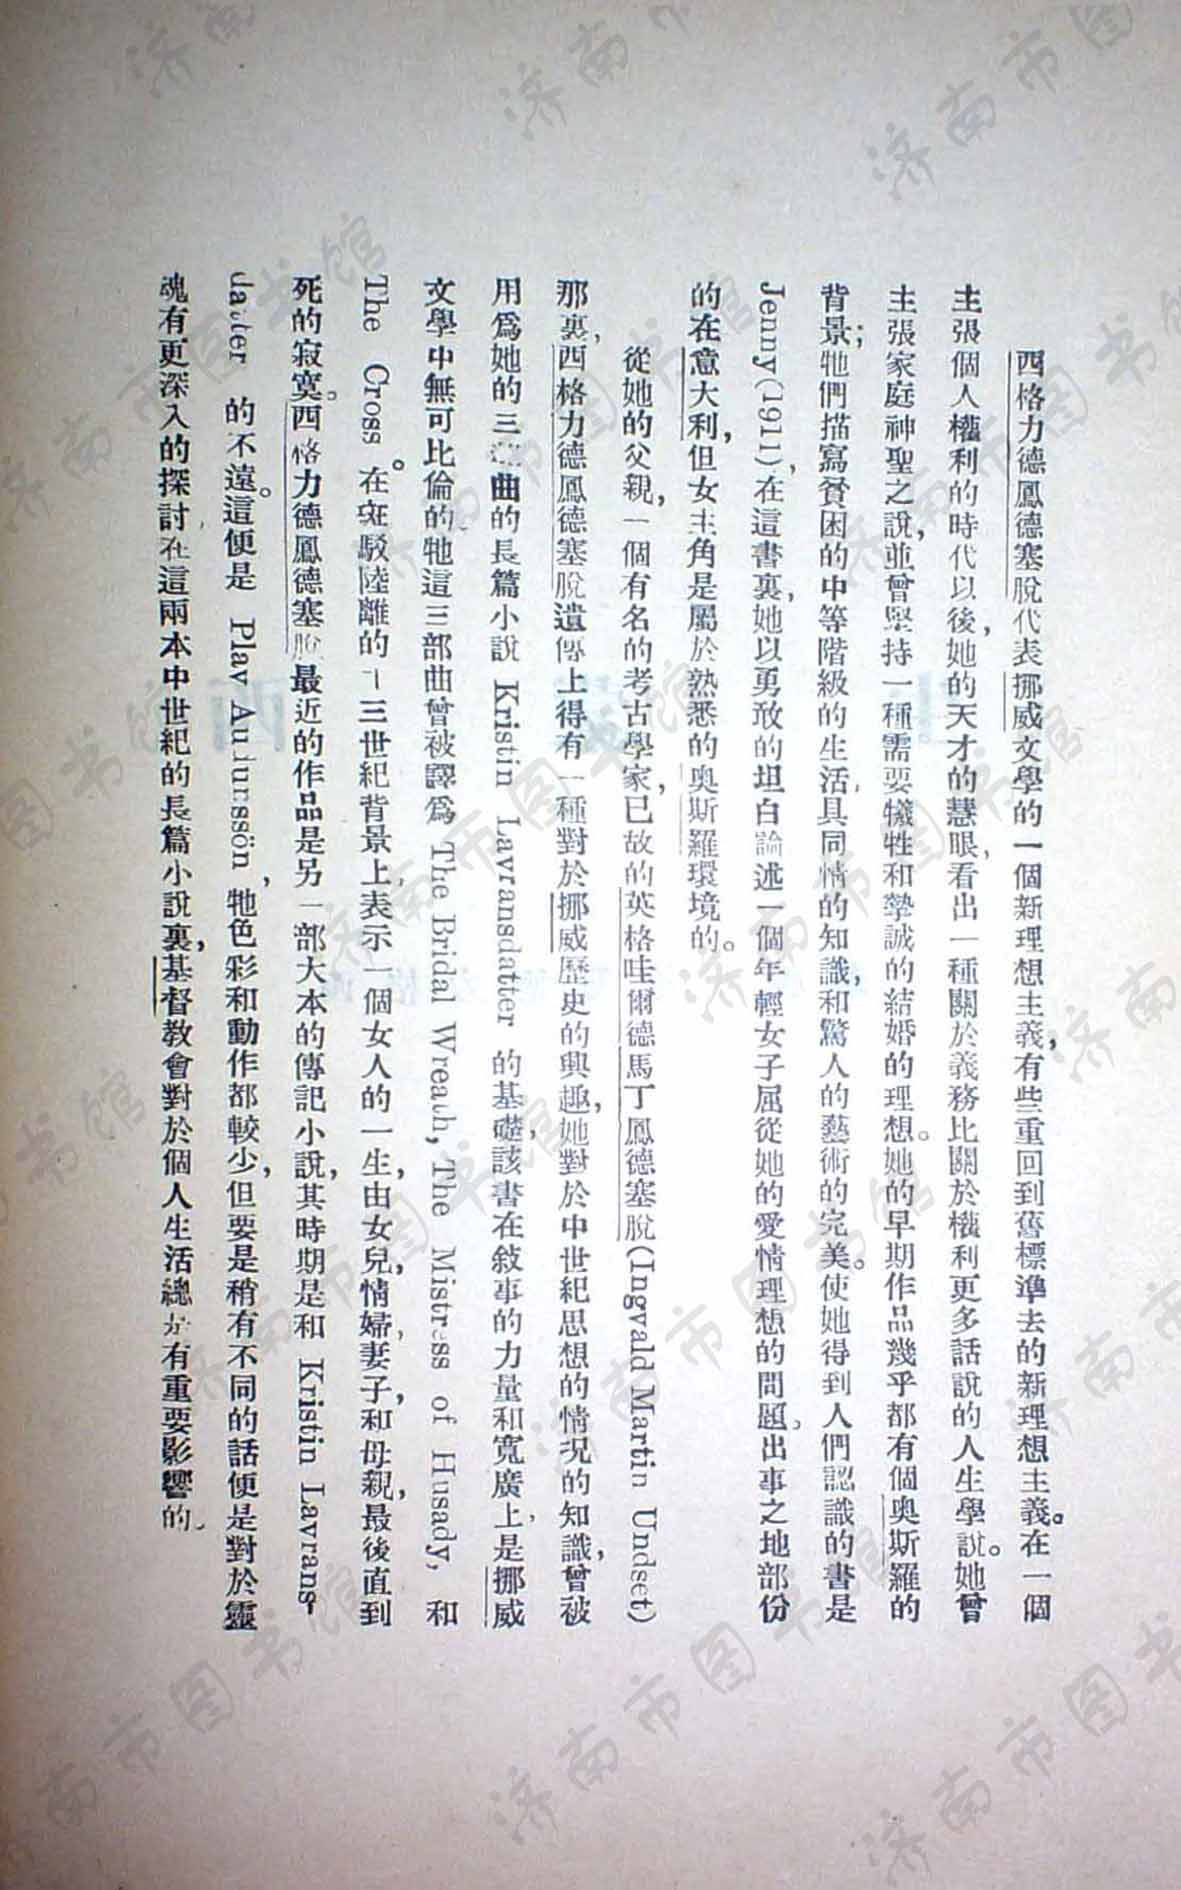 西格力德鳳德塞脫代表挪威文學的一個新理想主義,有些重回到舊標準去的新理想主義。在一個
主張個人權利的時代以後,她的天才的慧眼,看出一種關於義務比關於權利更多話說的人生學說。她曾
主張家庭神聖之說,並曾堅持一種需要犧牲和摯誠的結婚的理想。她的早期作品幾乎都有個奧斯羅的
背景;牠們描寫貧困的中等階級的生活,具同情的知識,和驚人的藝術的完美。使她得到人們認識的書是
Jenny(1911),在這書裏,她以勇敢的坦白論述一個年輕女子屈從她的愛情理想的問題。出事之地部份
的在意大利,但女主角是屬於熟悉的奧斯羅環境的。
從她的父親,一個有名的考古學家,已故的英格哇爾德馬丁鳳德塞脫(Ingvald Martin Undset)
那裏,西格力德鳳德塞脫遺傳上得有一種對於挪威歷史的興趣,她對於中世紀思想的情況的知識,曾被
用爲她的三部曲的長篇小說 Kristin Lavransdatter 的基礎,該書在敍事的力量和寬廣上,是挪威
文學中無可比倫的。牠這三部曲曾被譯爲 The Bridal Wreath, The Mistress of Husady, 和
The Cross。在斑駁陸離的十三世紀背景上,表示一個女人的一生,由女兒,情婦,妻子,和母親,最後直到
死的寂寞。西格力德鳳德塞脫最近的作品是另一部大本的傳記小說,其時期是和 Kristin Lavrans-
datter 的不遠。這便是 Plav Audunssön,牠色彩和動作都較少,但要是稍有不同的話便是對於靈
魂有更深入的探討,在這兩本中世紀的長篇小說裏,基督教會對於個人生活總是有重要影響的。
濟南市图书馆